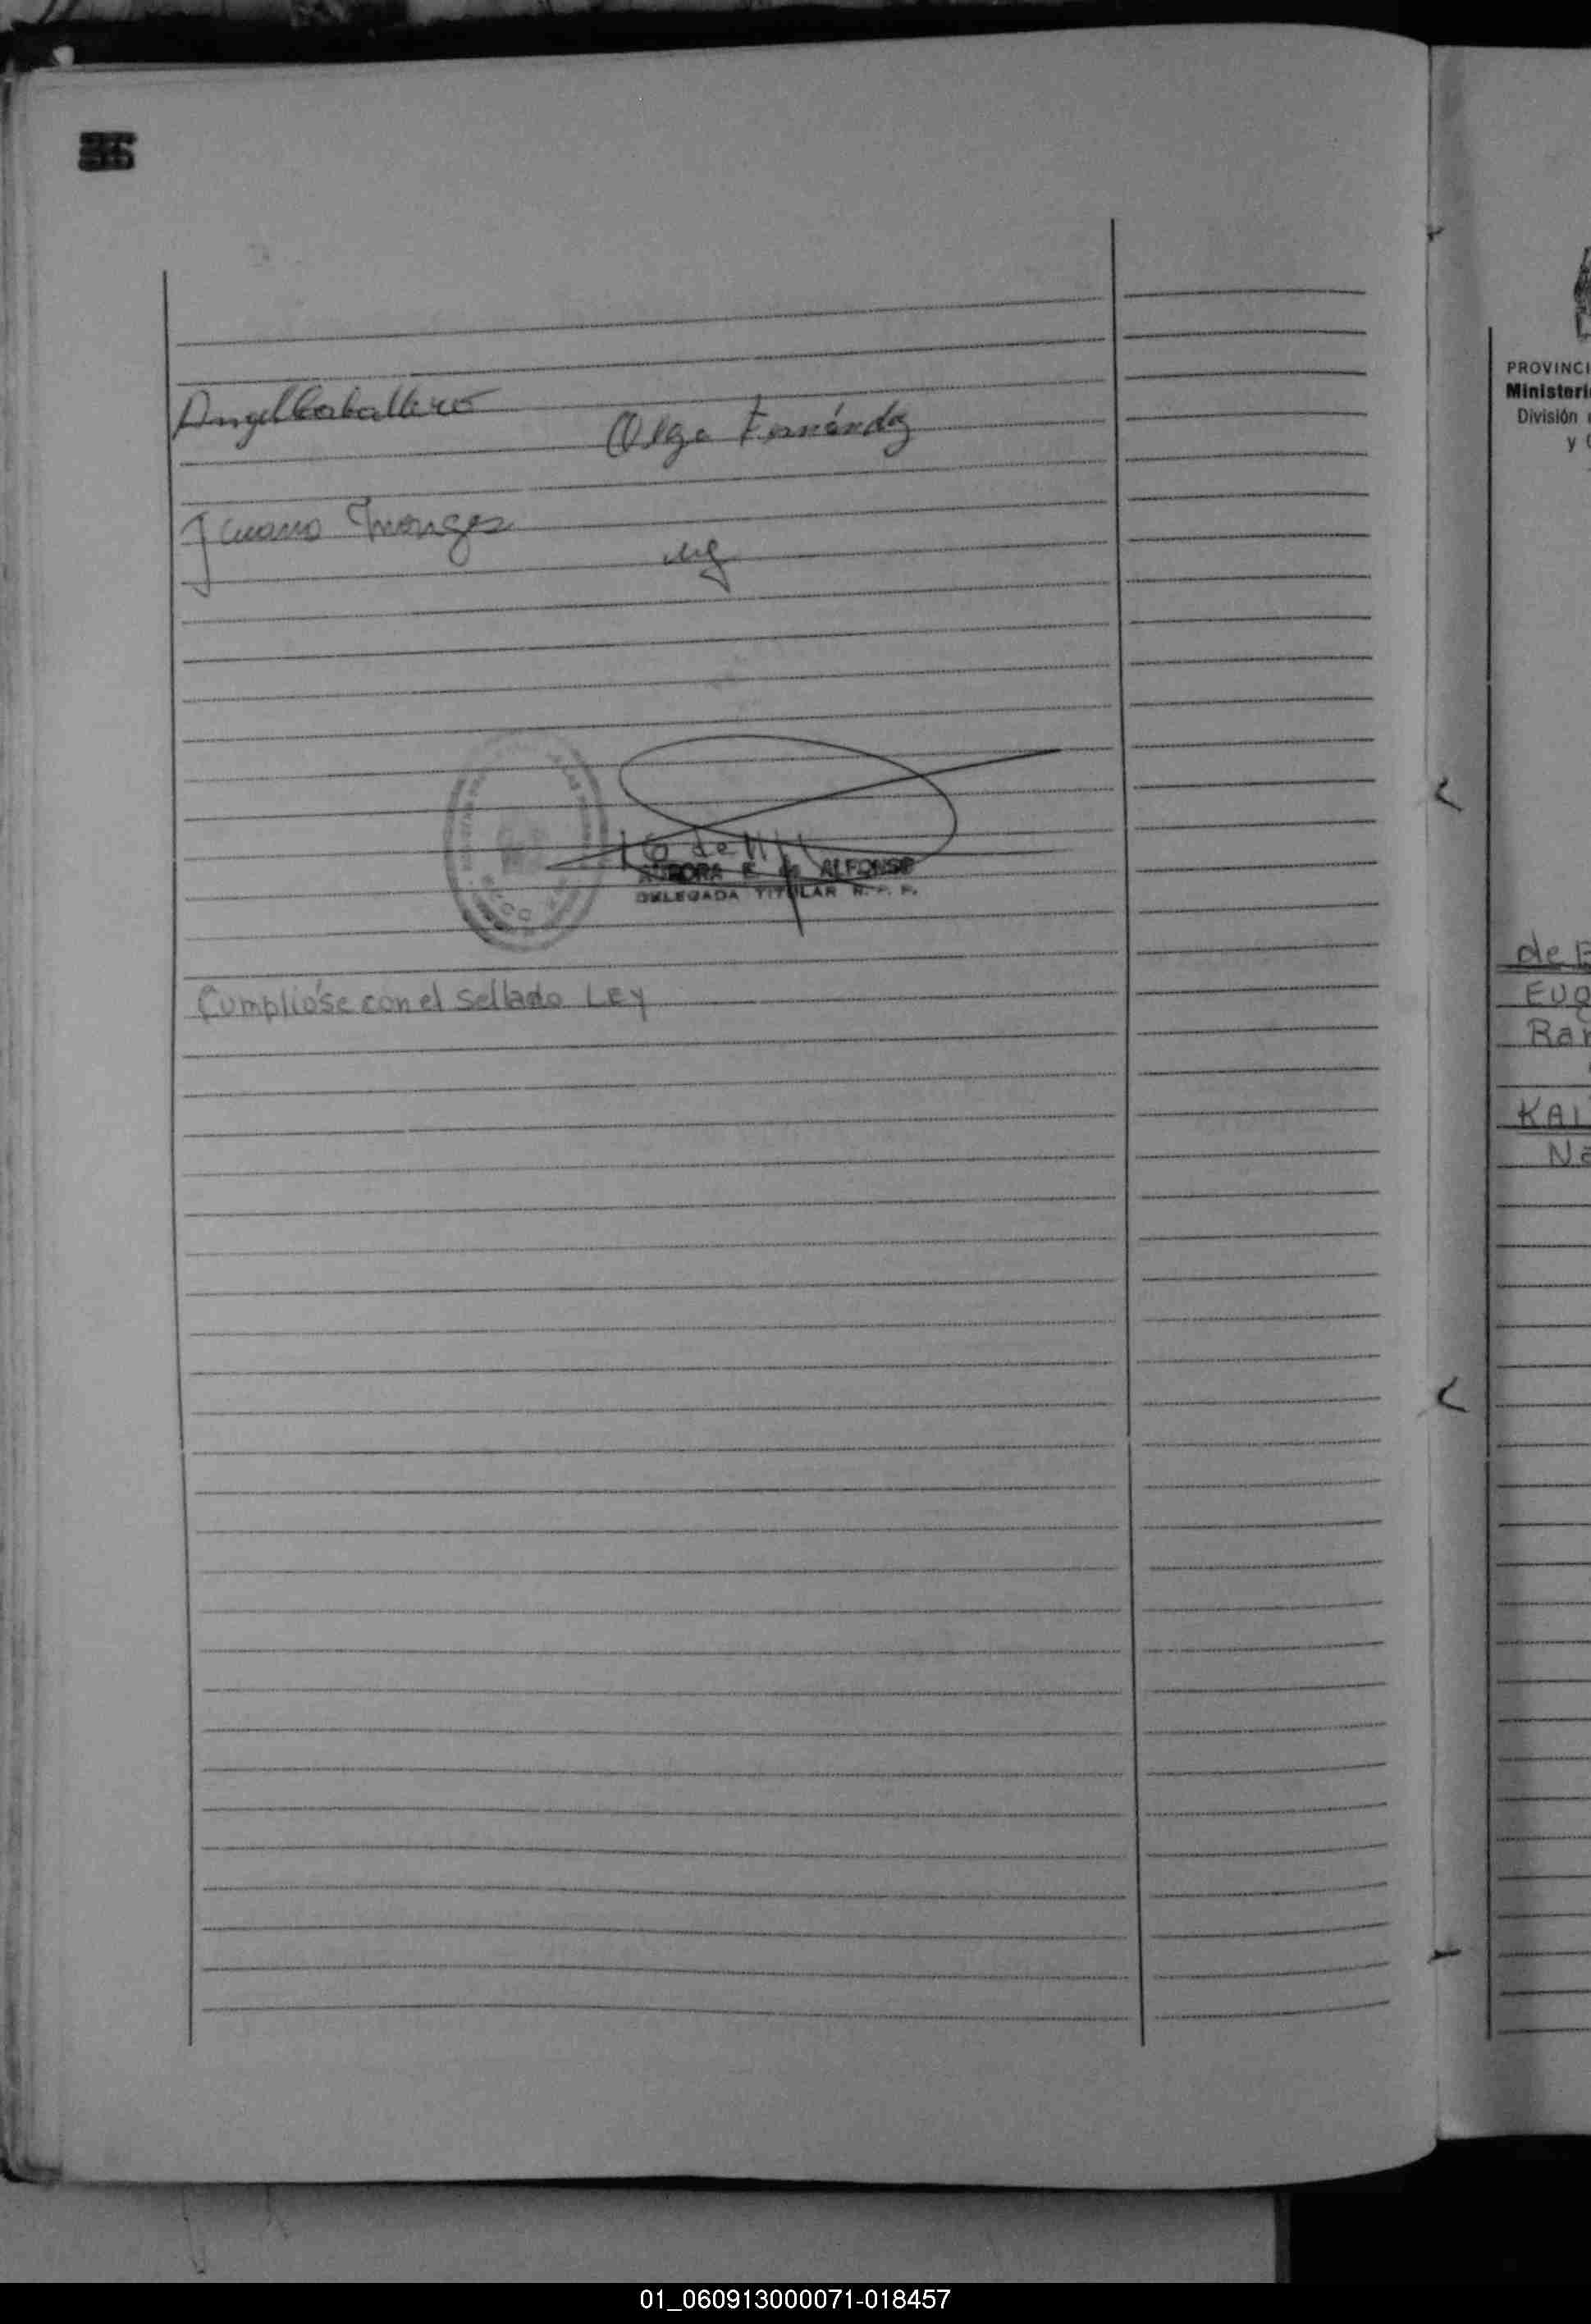 Angel Caballero
Olga Fernández
AURORA E. de ALFONSO
DELEGADA TITULAR R. P. P.
Cumplióse con el sellado LEY
PROVINCI
Ministeri
División
y
de E
EUG
Rar
KAI
Na
01_060913000071-018457